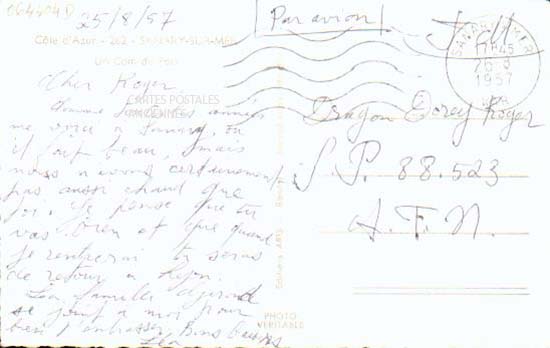 064404D
25/8/57
Par avion
F. M
Côte d'Azur - 262 - SANARY-SUR-MER
Un Coin du Port
SANARY
17 45
26 8
1957
VAR
Cher Roger
CARTES POSTALES
ANCIENNES
Comme toutes les années
me voici à Sanary, où
il fait beau, mais
nous n'avons certainement
pas aussi chaud que
toi. Je pense que tu
vas bien et que quand
je rentrerai tu seras
de retour à
Dragon Dorey Roger
S.P. 88.523
A.F.N.
se joint à moi pour
bien t'embrasser. Bons baisers
Léa
PHOTO
VERITABLE